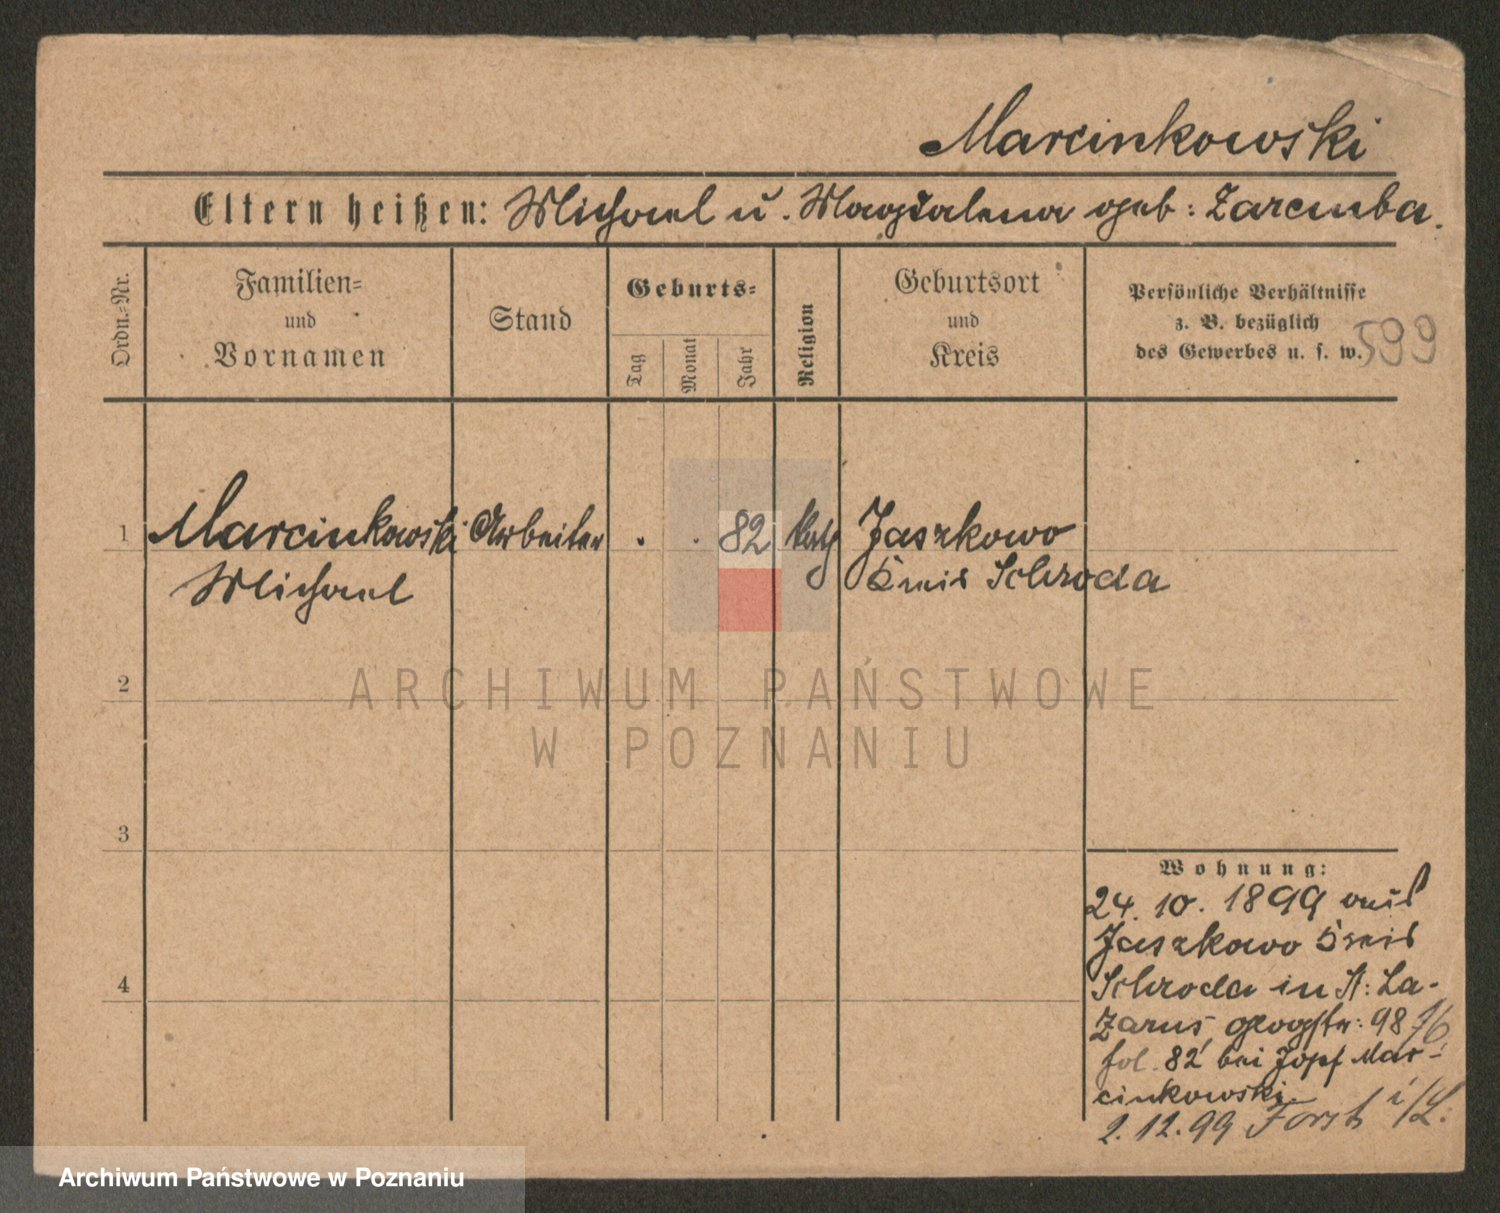 Marcinkowski
Eltern heißen: Michael u. Magdalena geb: Zaremba.
Ordn.-Nr.
Familien-
und
Vornamen
Stand
Geburts-
Tag
Monat
Jahr
Religion
Geburtsort
und
Kreis
Persönliche Verhältnisse
z. B. bezüglich
des Gewerbes u. s. w.
599
1 Marcinkowski Arbeiter . . 82 kath Jaszkowo
Michael Kreis Schroda
2
ARCHIWUM PAŃSTWOWE
W POZNANIU
3
Wohnung:
24. 10. 1899 aus
Jaszkowo Kreis
4
Schroda in St: La-
zarus, 98
fol. 82 bei Josef Mar-
cinkowski.
2. 12. 99 Forst i/L:
Archiwum Państwowe w Poznaniu